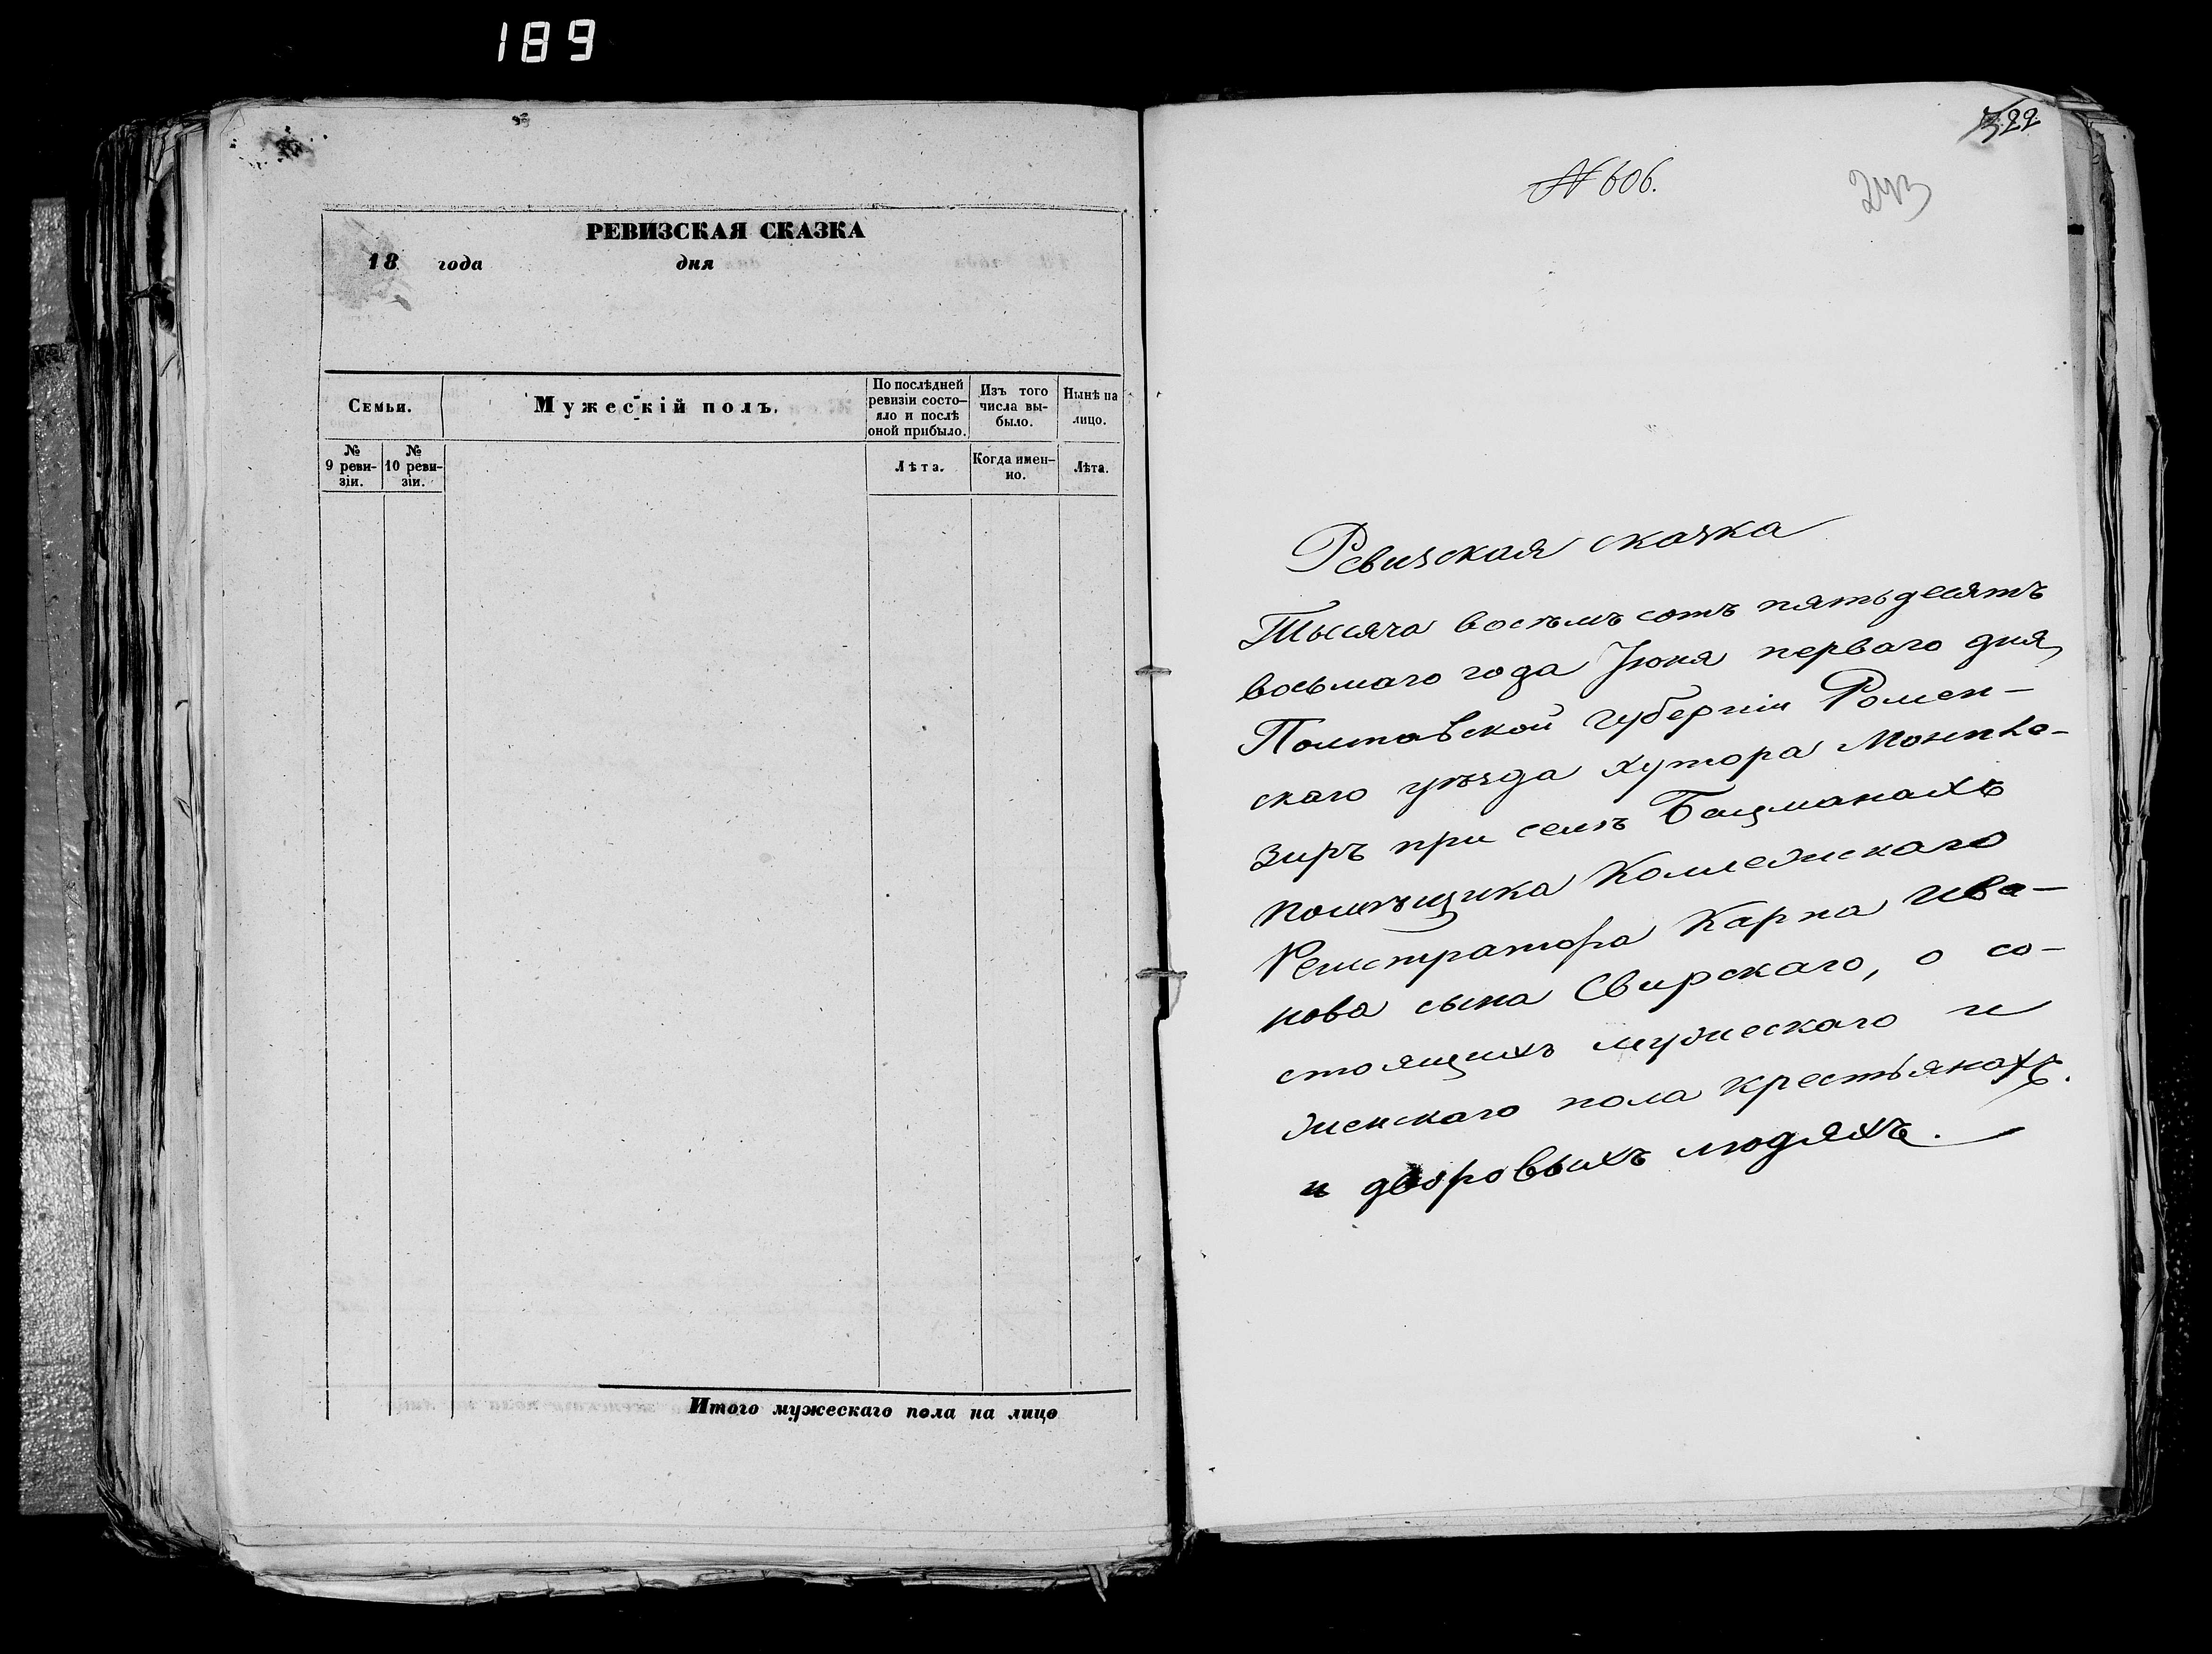 189
РЕВИЗСКАЯ СКАЗКА
18 года дня
Семьи.
Мужескій полъ.
По послѣдней ревизіи состо-
яло и послѣ
оной прибыло.
Изъ того
числа вы-
было.
Нынѣ на
лицо.
№
9 реви-
зіи.
№
10 реви-
зіи.
Лѣта.
Когда имен-
но.
Лѣта.
Итого мужескаго пола на лицо
322
N 606.
243
Ревизская сказка
Тысяча восемь сотъ пятьдесятъ
восьмаго года Іюня перваго дня,
Полтавской губерніи Ромен-
скаго уѣзда хутора Монпле-
зиръ при селѣ Бацманахъ
помѣщика Коллежскаго
Регистратора Карпа Ива-
нова сына Свирскаго, о со-
стоящихъ мужескаго и
женскаго пола крестьянахъ.
и дворовыхъ людяхъ.